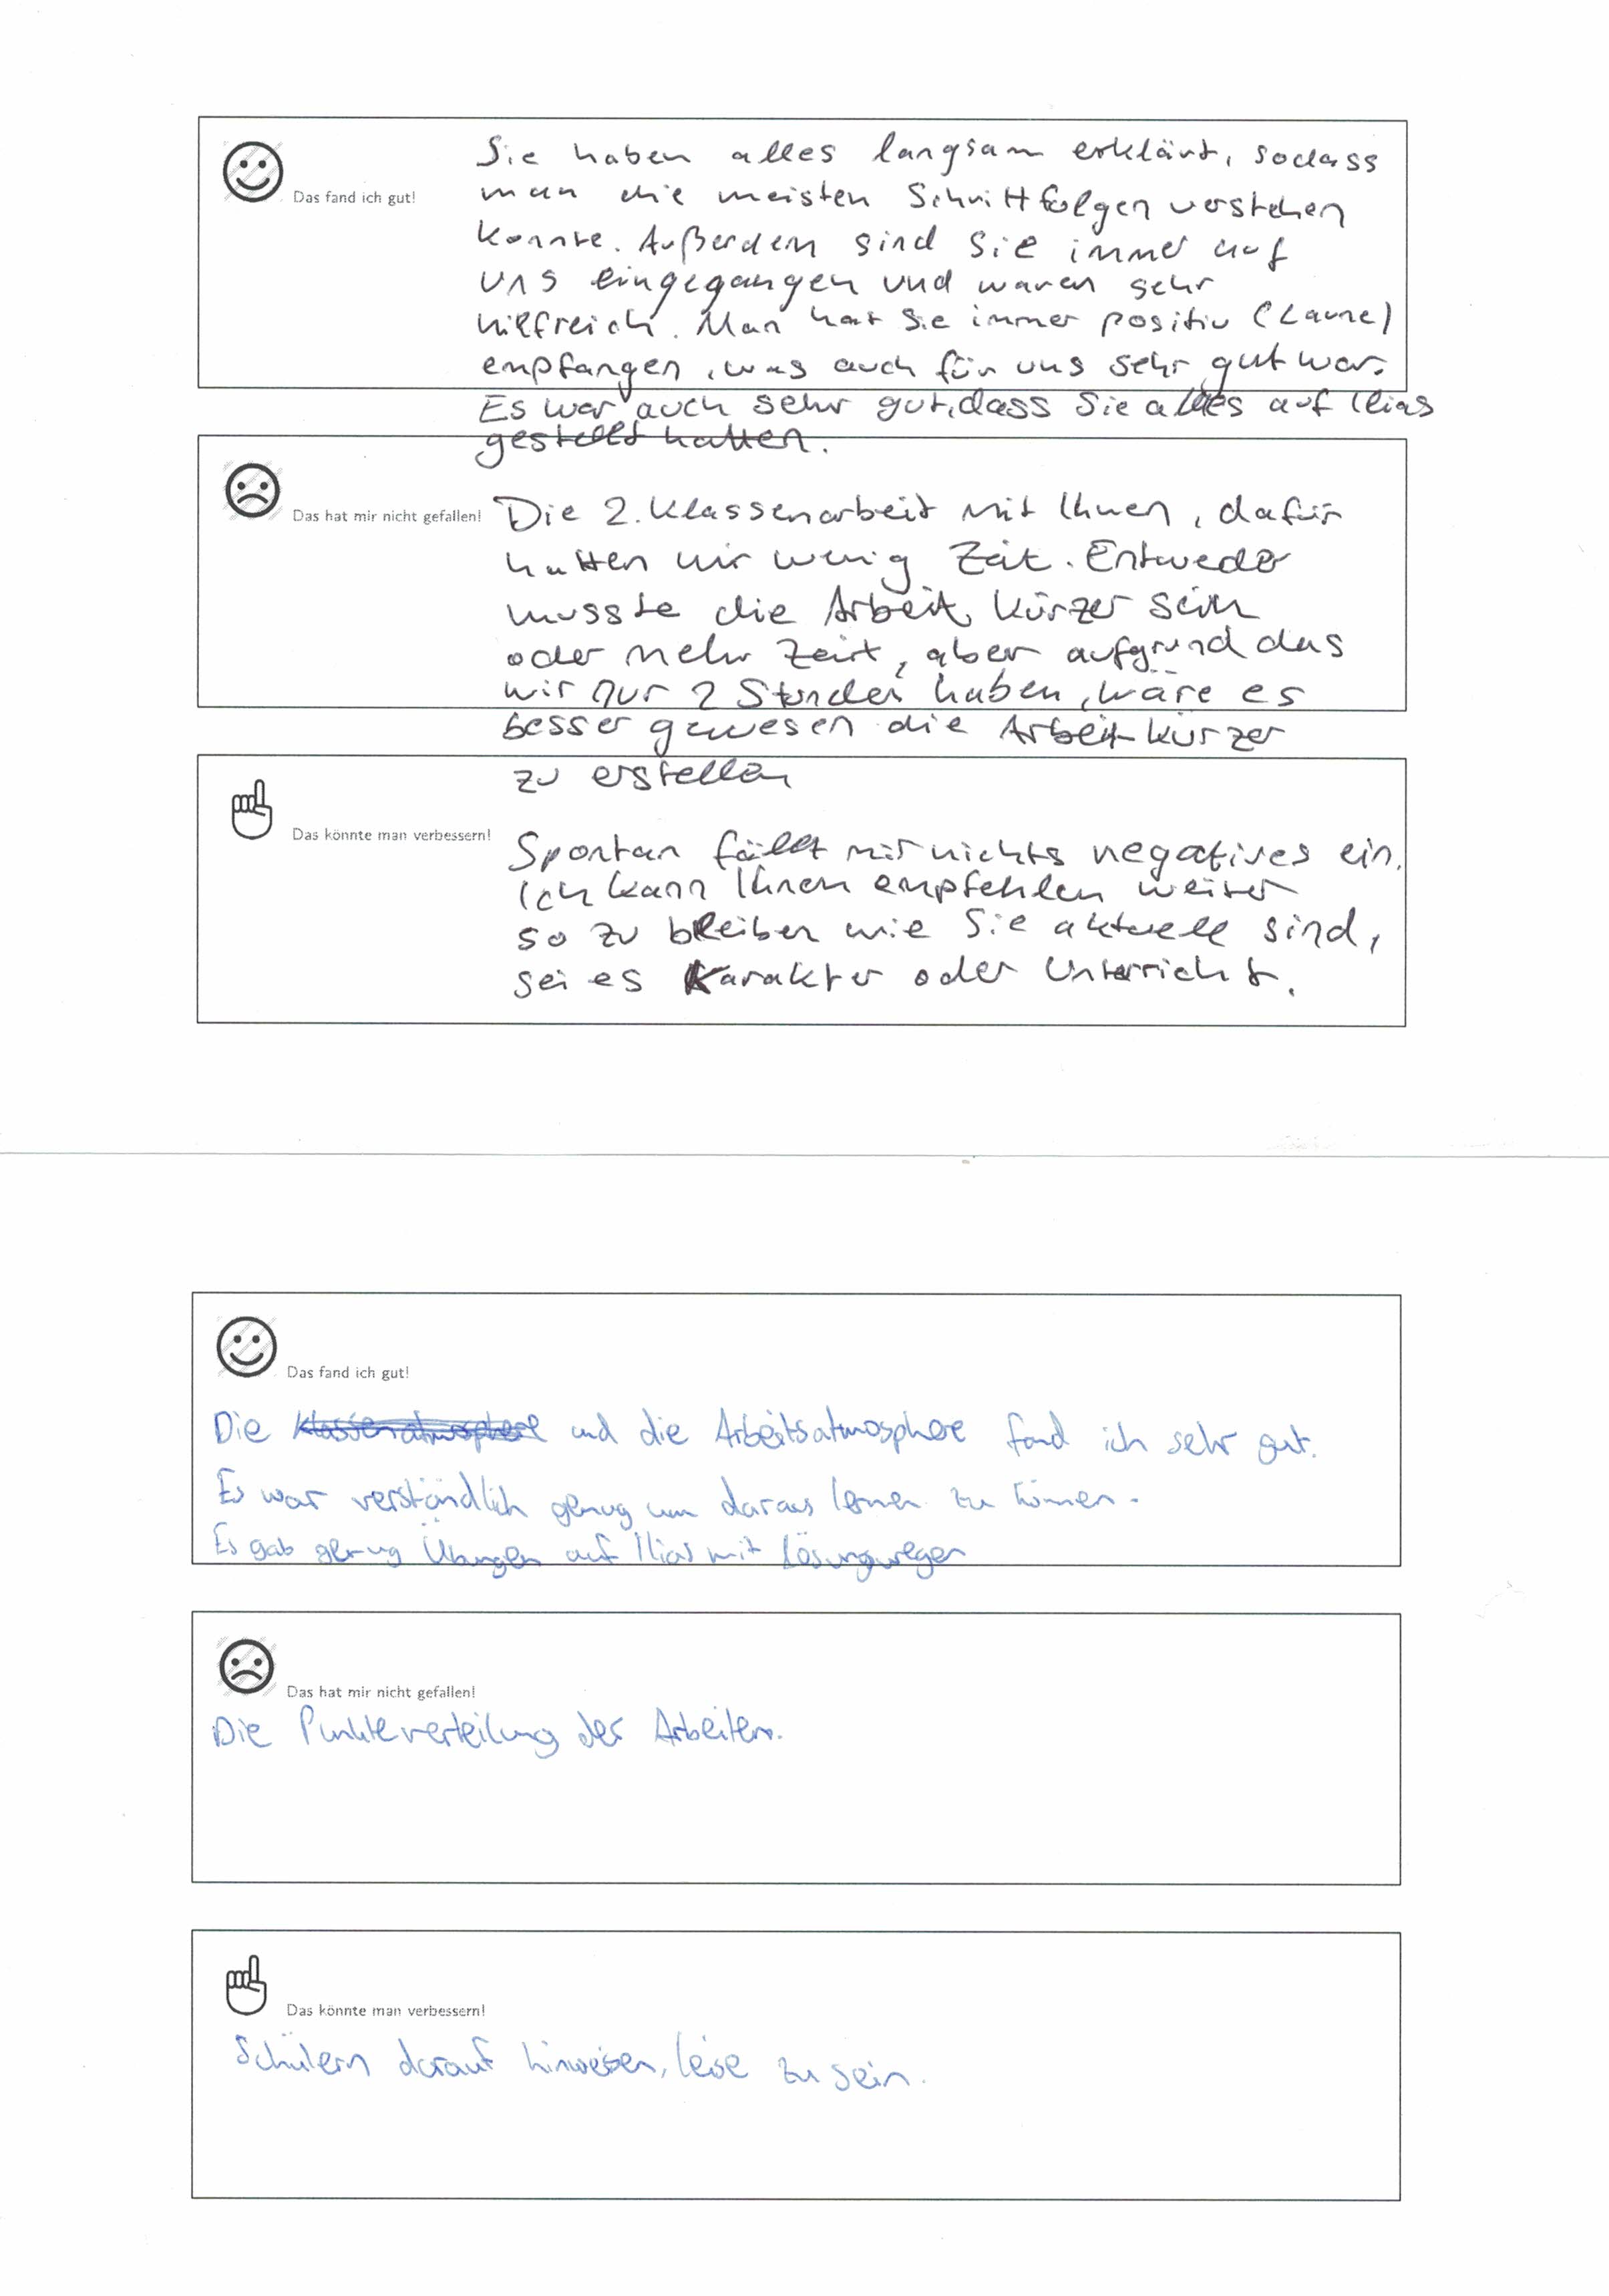 Das fand ich gut!
Sie haben alles langsam erklärt, sodass
man die meisten Schrittfolgen verstehen
konnte. Außerdem sind Sie immer auf
uns eingegangen und waren sehr
hilfreich. Man hat Sie immer positiv (Laune)
empfangen, was auch für uns sehr gut war.
Es war auch sehr gut, dass Sie alles auf Ilias
gestellt hatten.
Das hat mir nicht gefallen!
Die 2. Klassenarbeit mit Ihnen, dafür
hatten wir wenig Zeit. Entweder
musste die Arbeit kürzer sein
oder mehr Zeit, aber aufgrund das
wir nur 2 Stunden haben, wäre es
besser gewesen die Arbeit kürzer
zu erstellen
Das könnte man verbessern!
Spontan fällt mir nichts negatives ein.
Ich kann Ihnen empfehlen weiter
so zu bleiben wie Sie aktuell sind,
sei es Karakter oder Unterricht.
Das fand ich gut!
Die Klassenatmosphere und die Arbeitsatmosphere fand ich sehr gut.
Es war verständlich genug um daraus lernen zu können.
Es gab genug Übungen auf Ilias mit Lösungwegen
Das hat mir nicht gefallen!
Die Punkteverteilung der Arbeiten.
Das könnte man verbessern!
Schülern darauf hinweisen, leise zu sein.